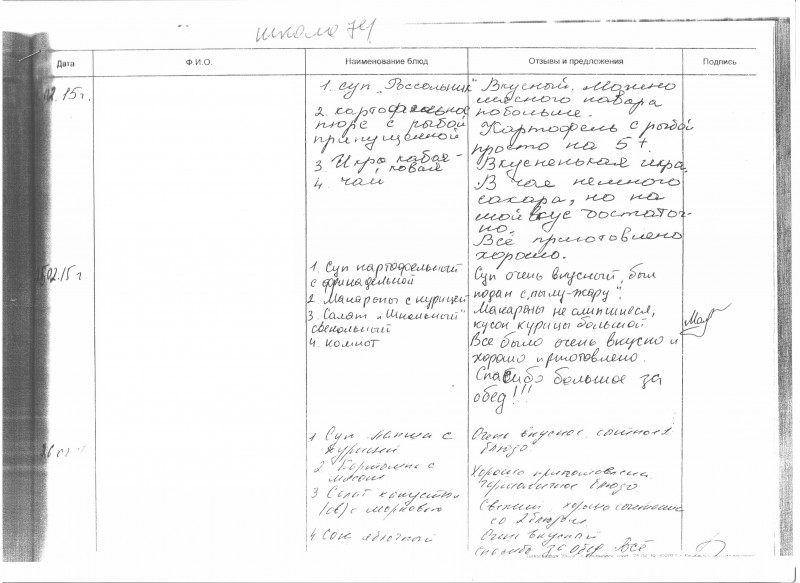 школа 74
Дата Ф.И.О. Наименование блюд Отзывы и предложения Подпись
02.15г.
1. суп „Рассольник"
2. картофельное
пюре с рыбой
припущенной
3. Икра кабач-
ковая
4. чай
Вкусный. Можно
мясного навара
побольше.
Картофель с рыбой
просто на 5+.
Вкусненькая икра.
В чае немного
сахара, но на
мой вкус достаточ-
но.
Всё приготовлено
хорошо.
02.15г.
1. Суп картофельный
с фрикаделькой
2. Макароны с курицей
3. Салат „Школьный"
свекольный
4. компот
Суп очень вкусный, был
подан с „пылу-жару".
Макароны не слипшиеся,
кусок курицы большой
Все было очень вкусно и
хорошо приготовлено.
Спасибо большое за
обед!!!
1 Суп лапша с
курицей
2 Картошка с
мясом
3 Салат капустный
(св) с морковью
4. Сок яблочный
Очень вкусное, сытное
блюдо
Хорошо приготовлена
блюдо
Свежий, хорошо
со 2 блюдом
Очень вкусный
Спасибо за обед Всё